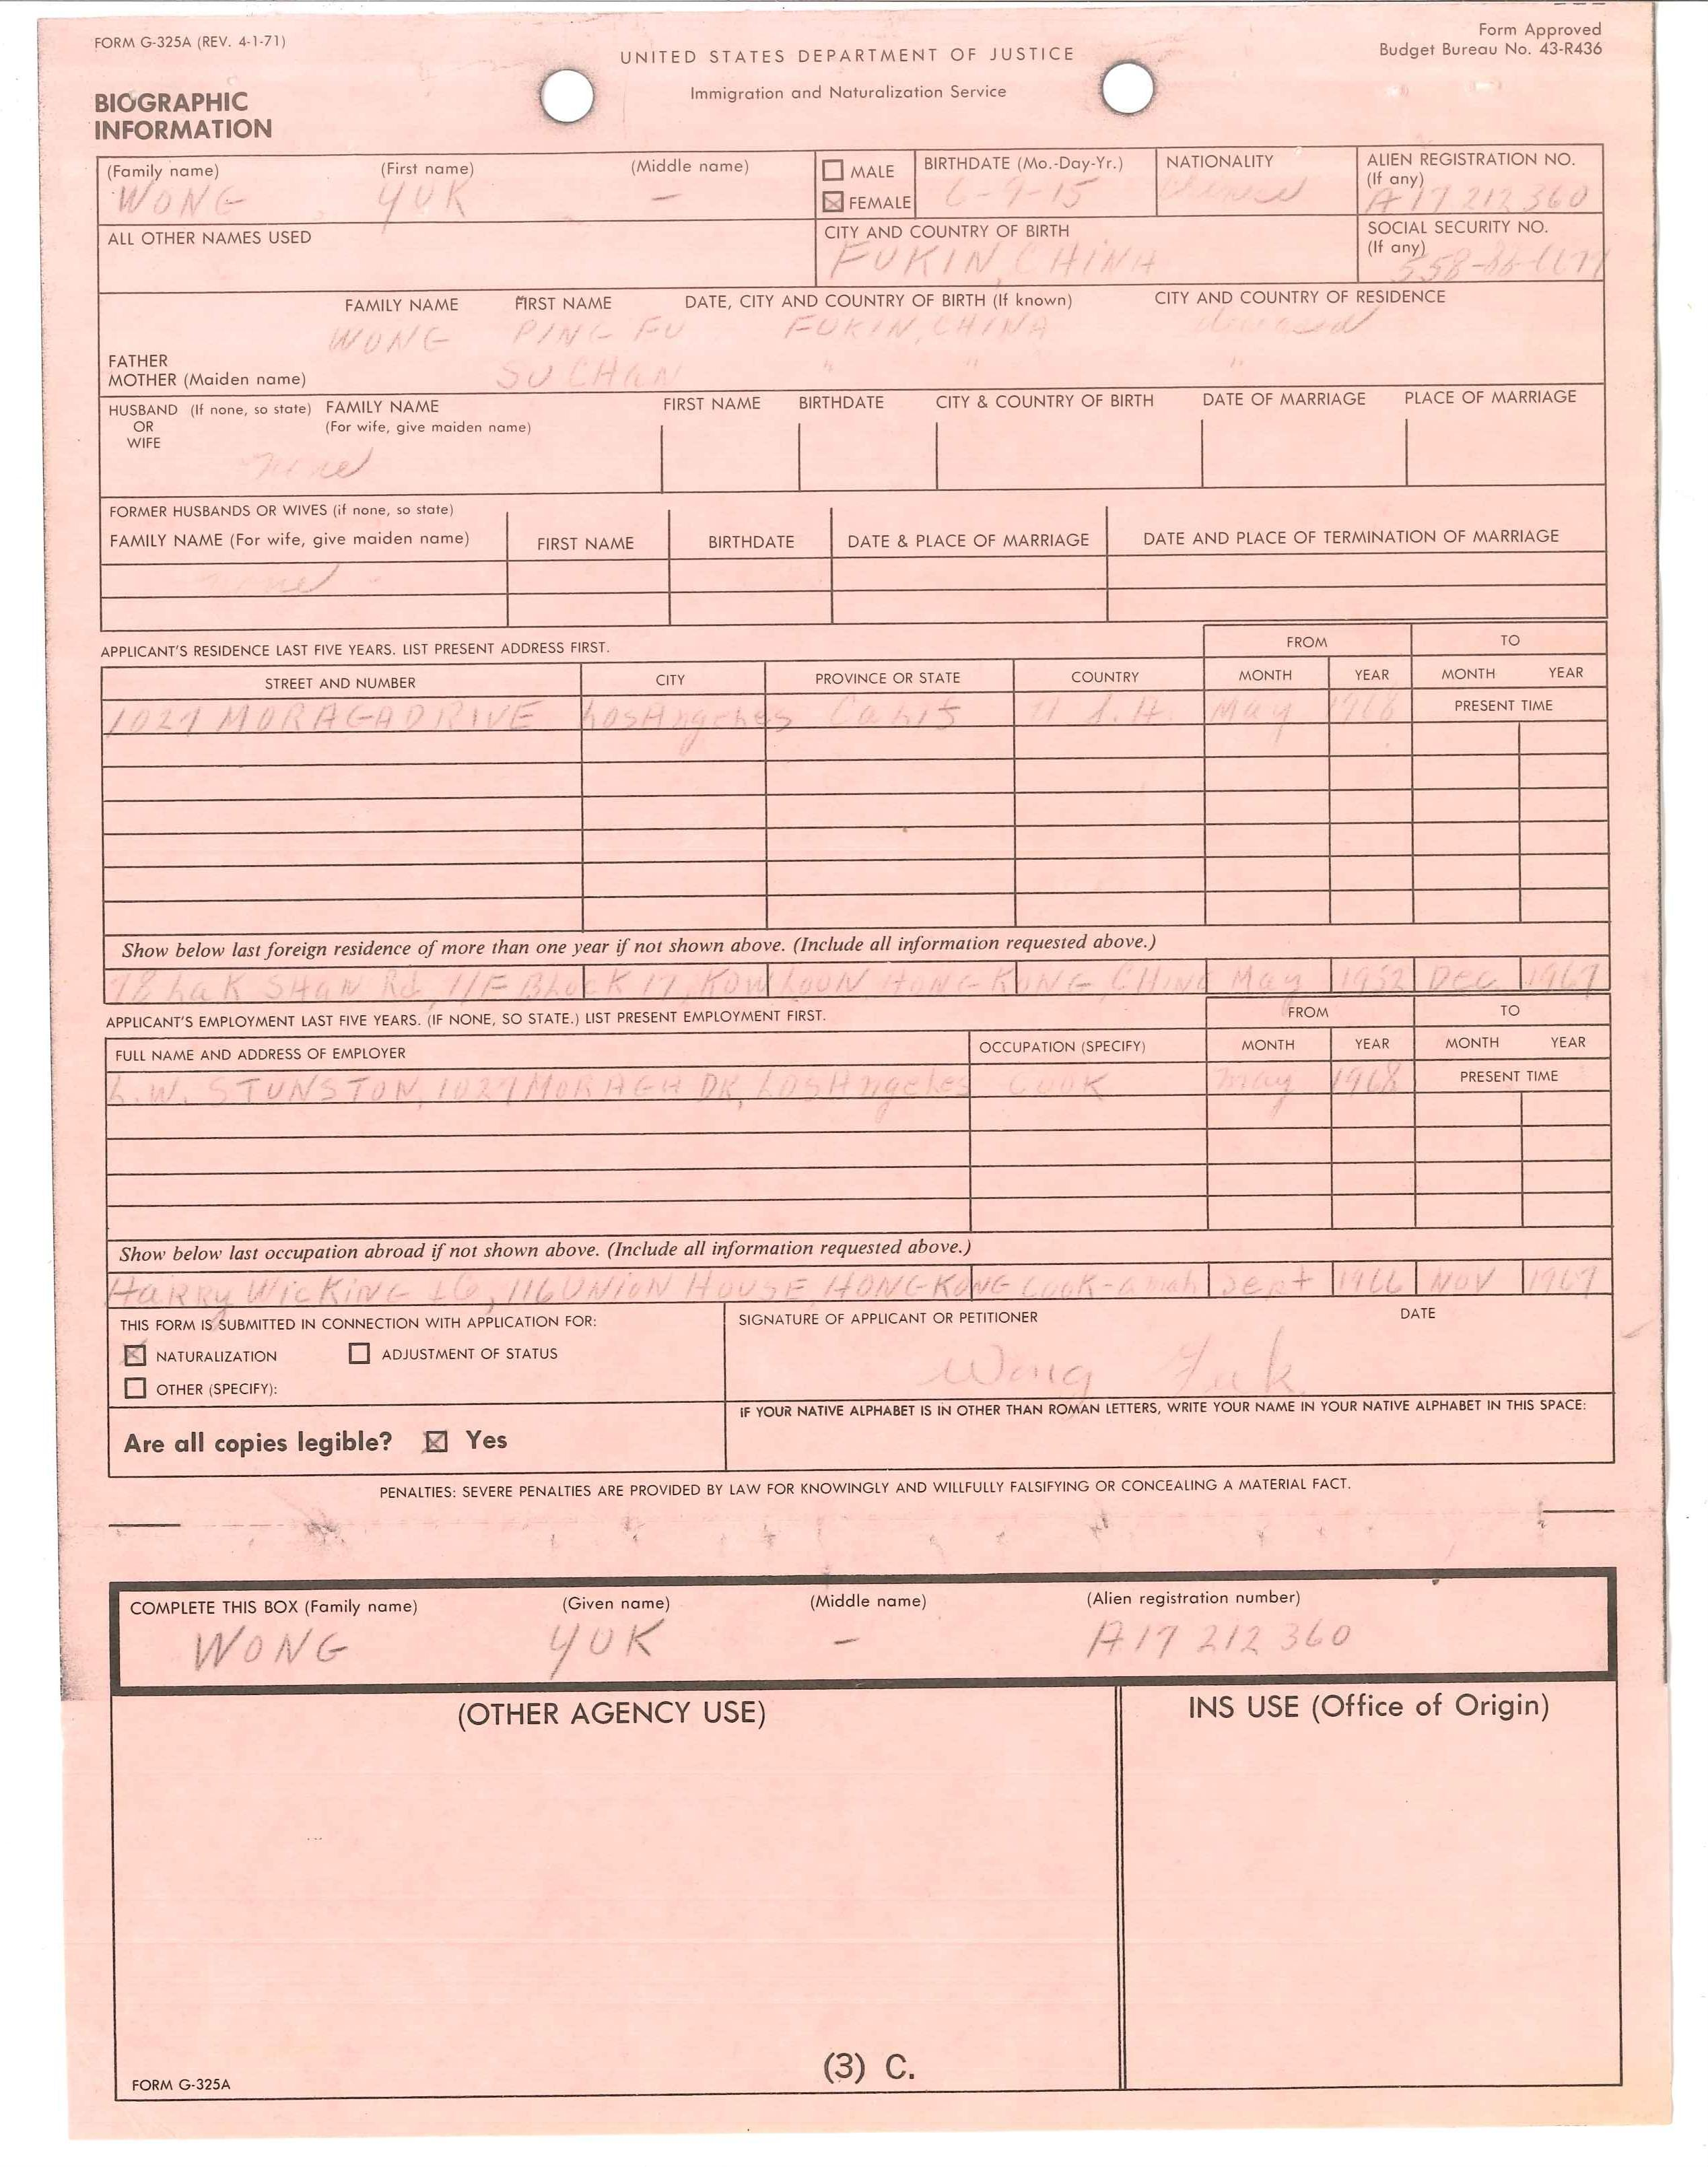 FORM G-325A (REV. 4-1-71)
Form Approved
Budget Bureau No. 43-R436
UNITED STATES DEPARTMENT OF JUSTICE
Immigration and Naturalization Service
BIOGRAPHIC
INFORMATION
(Family name) (First name) (Middle name) MALE BIRTHDATE (Mo.-Day-Yr.) NATIONALITY ALIEN REGISTRATION NO.
(If any)
WONG YUK — FEMALE 6-9-15 Chinese A17 212 360
ALL OTHER NAMES USED CITY AND COUNTRY OF BIRTH SOCIAL SECURITY NO.
(If any)
FUKIN, CHINA
FAMILY NAME FIRST NAME DATE, CITY AND COUNTRY OF BIRTH (If known) CITY AND COUNTRY OF RESIDENCE
FATHER WONG PING FU FUKIN, CHINA deceased
MOTHER (Maiden name) SU CHAN " " "
HUSBAND (If none, so state) FAMILY NAME FIRST NAME BIRTHDATE CITY & COUNTRY OF BIRTH DATE OF MARRIAGE PLACE OF MARRIAGE
OR (For wife, give maiden name)
WIFE
none
FORMER HUSBANDS OR WIVES (if none, so state)
FAMILY NAME (For wife, give maiden name) FIRST NAME BIRTHDATE DATE & PLACE OF MARRIAGE DATE AND PLACE OF TERMINATION OF MARRIAGE
none
APPLICANT'S RESIDENCE LAST FIVE YEARS. LIST PRESENT ADDRESS FIRST. FROM TO
STREET AND NUMBER CITY PROVINCE OR STATE COUNTRY MONTH YEAR MONTH YEAR
1027 MORAGA DRIVE Los Angeles Calif U.S.A. May 1968 PRESENT TIME
Show below last foreign residence of more than one year if not shown above. (Include all information requested above.)
78 Lak SHAN Rd, 11/F BLOCK 17, KOWLOON HONG KONG, CHINA May 1952 Dec 1967
APPLICANT'S EMPLOYMENT LAST FIVE YEARS. (IF NONE, SO STATE.) LIST PRESENT EMPLOYMENT FIRST. FROM TO
FULL NAME AND ADDRESS OF EMPLOYER OCCUPATION (SPECIFY) MONTH YEAR MONTH YEAR
L.W. STUNSTON, 1027 MORAGA DR, Los Angeles COOK May 1968 PRESENT TIME
Show below last occupation abroad if not shown above. (Include all information requested above.)
HARRY WICKING & Co, 116 UNION HOUSE, HONG KONG Cook-amah Sept 1966 NOV 1967
THIS FORM IS SUBMITTED IN CONNECTION WITH APPLICATION FOR: SIGNATURE OF APPLICANT OR PETITIONER DATE
NATURALIZATION ADJUSTMENT OF STATUS
OTHER (SPECIFY):
Wong Yuk
IF YOUR NATIVE ALPHABET IS IN OTHER THAN ROMAN LETTERS, WRITE YOUR NAME IN YOUR NATIVE ALPHABET IN THIS SPACE:
Are all copies legible? Yes
PENALTIES: SEVERE PENALTIES ARE PROVIDED BY LAW FOR KNOWINGLY AND WILLFULLY FALSIFYING OR CONCEALING A MATERIAL FACT.
COMPLETE THIS BOX (Family name) (Given name) (Middle name) (Alien registration number)
WONG YUK — A17 212 360
(OTHER AGENCY USE) INS USE (Office of Origin)
(3) C.
FORM G-325A